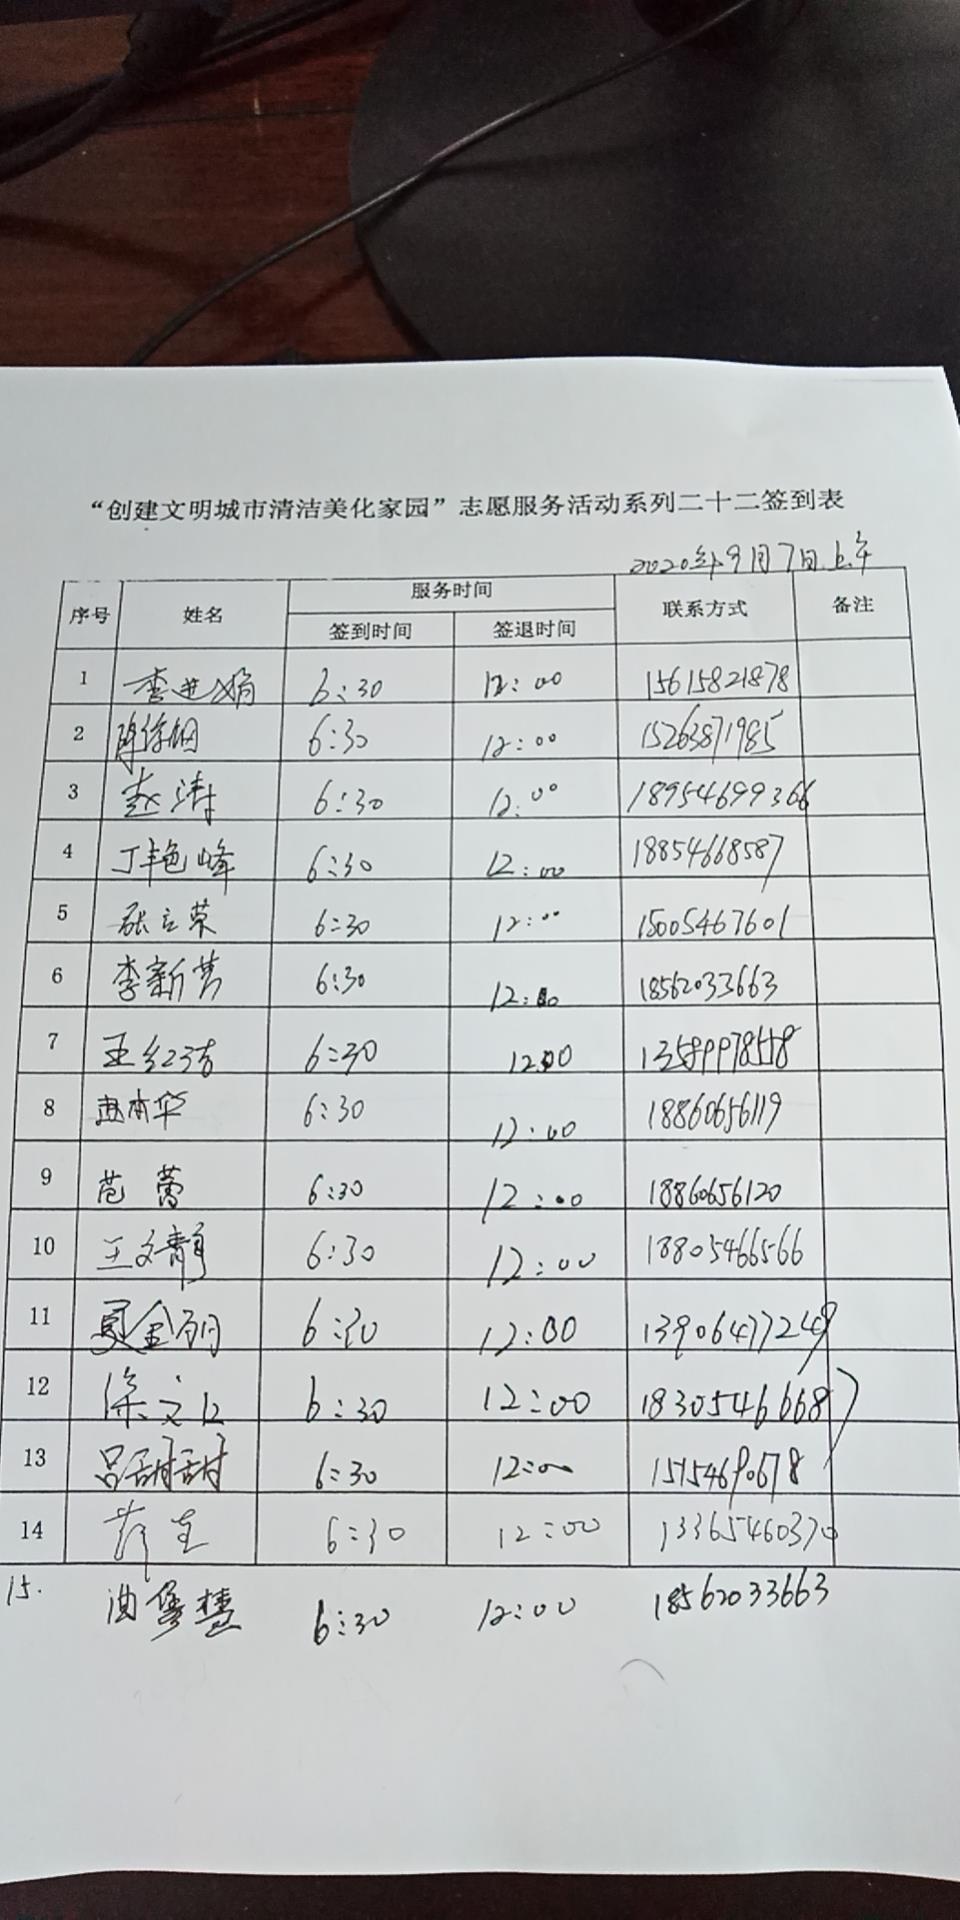 “创建文明城市清洁美化家园”志愿服务活动系列二十二签到表
2020年9月7日上午
序号 姓名 服务时间 联系方式 备注
签到时间 签退时间
1 李进娟 6:30 12:00 15615821878
2 6:30 12:00 15263871985
3 赵涛 6:30 12:00 18954699366
4 丁艳峰 6:30 12:00 18854668587
5 张立荣 6:30 12:00 15005467601
6 李新营 6:30 12:00 18562033663
7 王红洁 6:30 12:00 13589978558
8 赵本华 6:30 12:00 18860656119
9 范蕾 6:30 12:00 18860656120
10 王文静 6:30 12:00 18805466566
11 6:30 12:00 13906477249
12 6:30 12:00 18305466687
13 吕甜甜 6:30 12:00 15154690678
14 6:30 12:00 13365460370
15. 6:30 12:00 18562033663